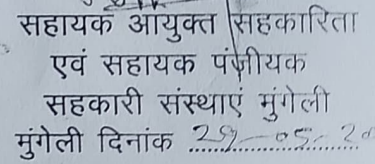 सहायक आयुक्त सहकारिता
एवं सहायक पंजीयक
सहकारी संस्थाएं मुंगेली
मुंगेली दिनांक 29-05-20